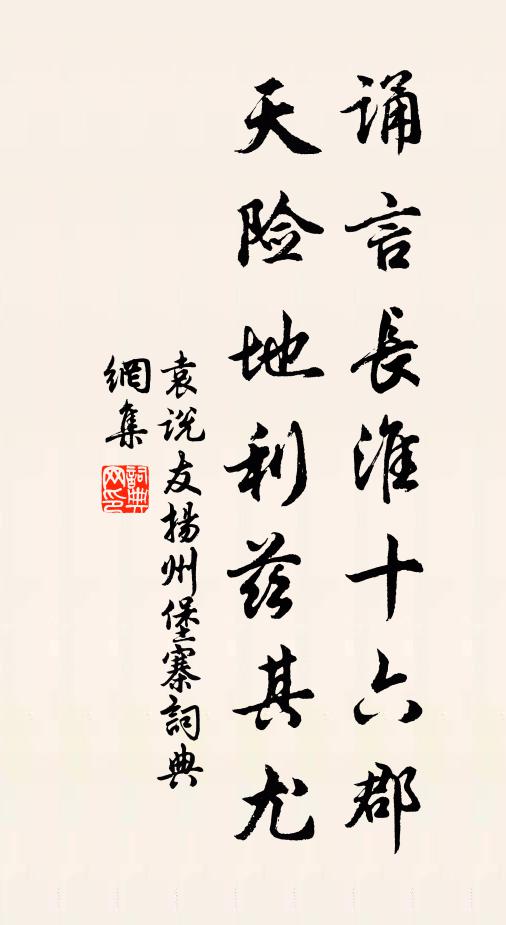 诵言長淮十六郡
天险地利茲其尤
袁说友揚州堡寨詞典
網集
詞典
网印